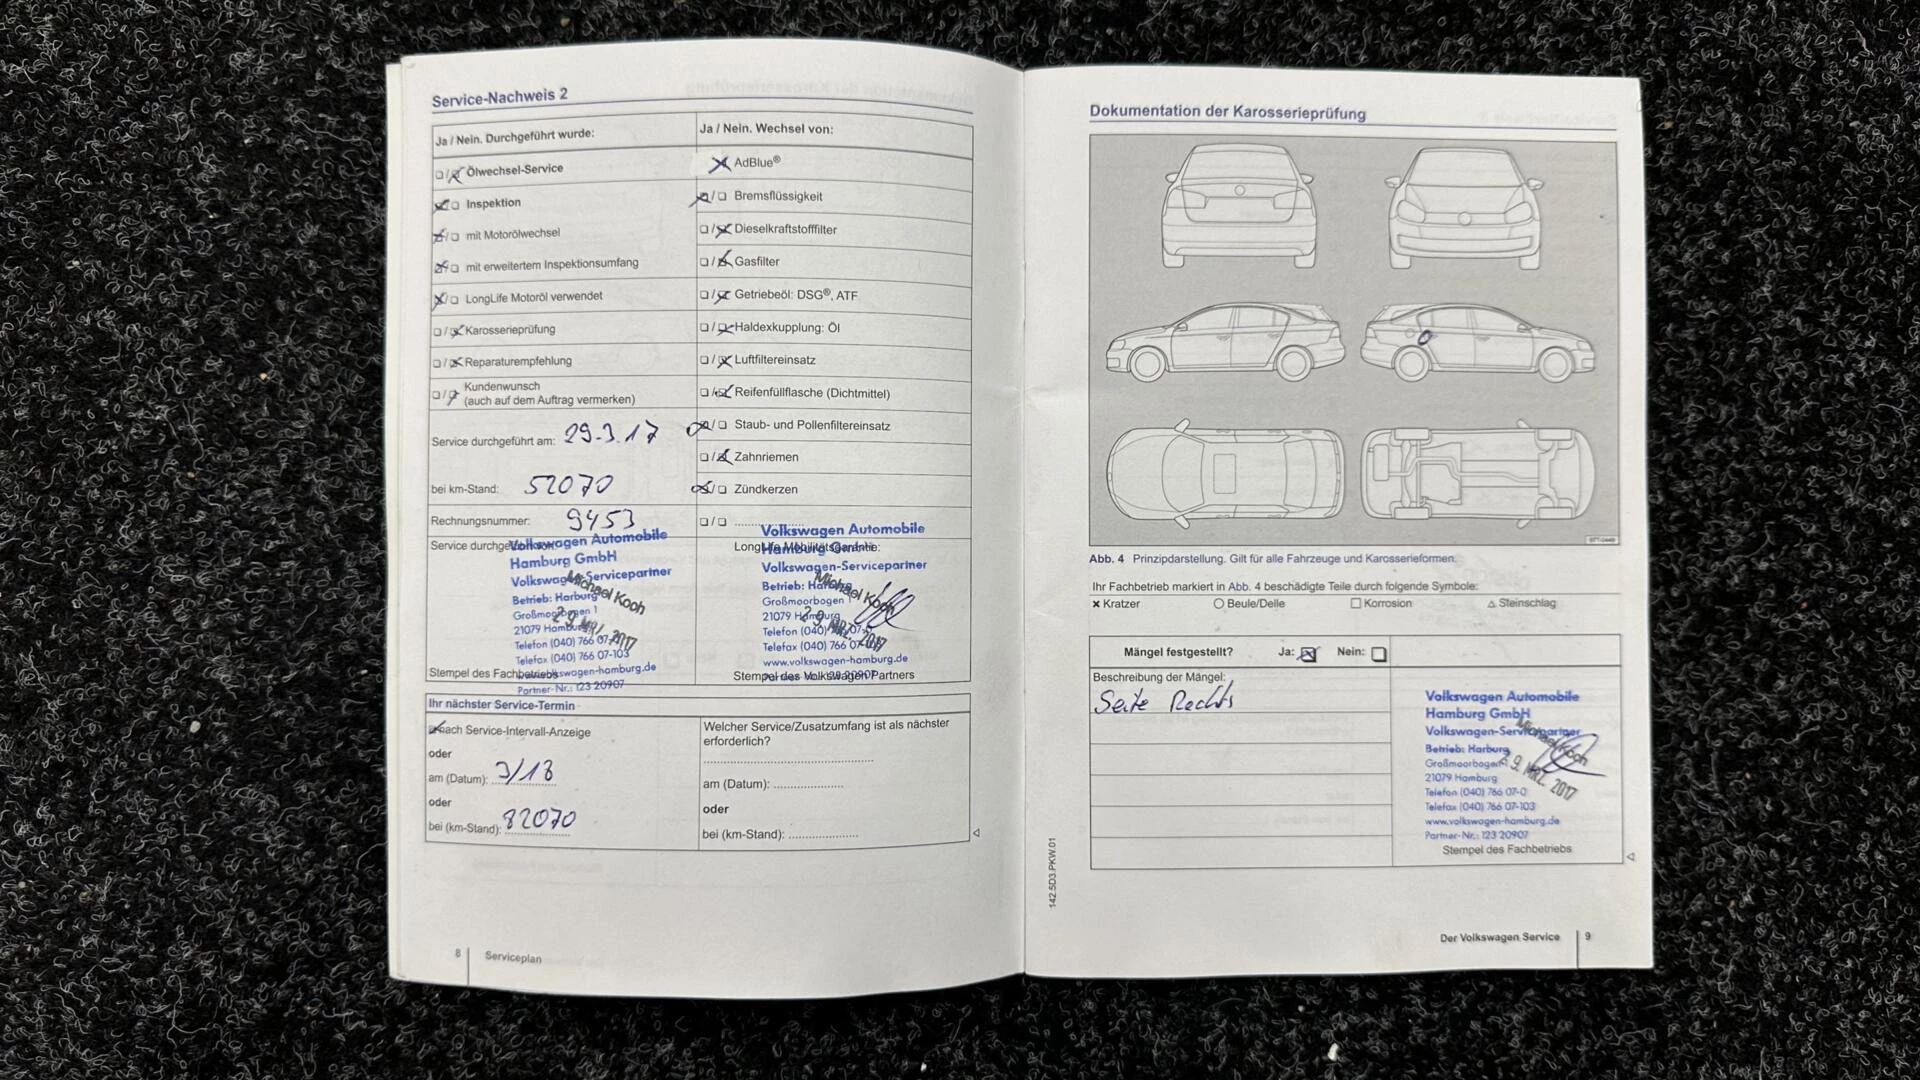 Service-Nachweis 2
Ja / Nein. Durchgeführt wurde:
Ölwechsel-Service
Inspektion
mit Motorölwechsel
mit erweitertem Inspektionsumfang
LongLife Motoröl verwendet
Karosserieprüfung
Reparaturempfehlung
Kundenwunsch
(auch auf dem Auftrag vermerken)
Service durchgeführt am: 29.3.17
bei km-Stand: 52070
Rechnungsnummer: 9453
Service durchge
Volkswagen Automobile
Hamburg GmbH
Volkswagen-Servicepartner
Betrieb: Harburg
Michael Koch
Großmoorbogen 1
21079 Hamburg
29. MRZ. 2017
Telefon (040) 766 07-
Telefax (040) 766 07-103
swagen-hamburg.de
Stempel des Fachbetriebs
Partner-Nr.: 123 20907
Ja / Nein. Wechsel von:
AdBlue®
Bremsflüssigkeit
Dieselkraftstofffilter
Gasfilter
Getriebeöl: DSG®, ATF
Haldexkupplung: Öl
Luftfiltereinsatz
Reifenfüllflasche (Dichtmittel)
Staub- und Pollenfiltereinsatz
Zahnriemen
Zündkerzen
Volkswagen Automobile
LongLife Mobilitätsgarantie:
Hamburg GmbH
Volkswagen-Servicepartner
Betrieb: Harburg
Michael Koch
Großmoorbogen
21079 Hamburg
29. MRZ. 2017
Telefon (040) 07-
Telefax (040) 766 07-103
www.volkswagen-hamburg.de
Stempel des Volkswagen Partners
Ihr nächster Service-Termin
nach Service-Intervall-Anzeige
oder
am (Datum): 3/18
oder
bei (km-Stand): 82070
Welcher Service/Zusatzumfang ist als nächster
erforderlich?
am (Datum):
oder
bei (km-Stand):
8 Serviceplan
Dokumentation der Karosserieprüfung
Abb. 4 Prinzipdarstellung. Gilt für alle Fahrzeuge und Karosserieformen.
Ihr Fachbetrieb markiert in Abb. 4 beschädigte Teile durch folgende Symbole:
Kratzer Beule/Delle Korrosion Steinschlag
Mängel festgestellt? Ja: Nein:
Beschreibung der Mängel:
Seite Rechts
Volkswagen Automobile
Hamburg GmbH
Volkswagen-Servicepartner
Michael Koch
Betrieb: Harburg
Großmoorbogen
29. MRZ. 2017
21079 Hamburg
Telefon (040) 766 07-0
Telefax (040) 766 07-103
www.volkswagen-hamburg.de
Partner-Nr.: 123 20907
Stempel des Fachbetriebs
142.5D3.PKW.01
Der Volkswagen Service 9